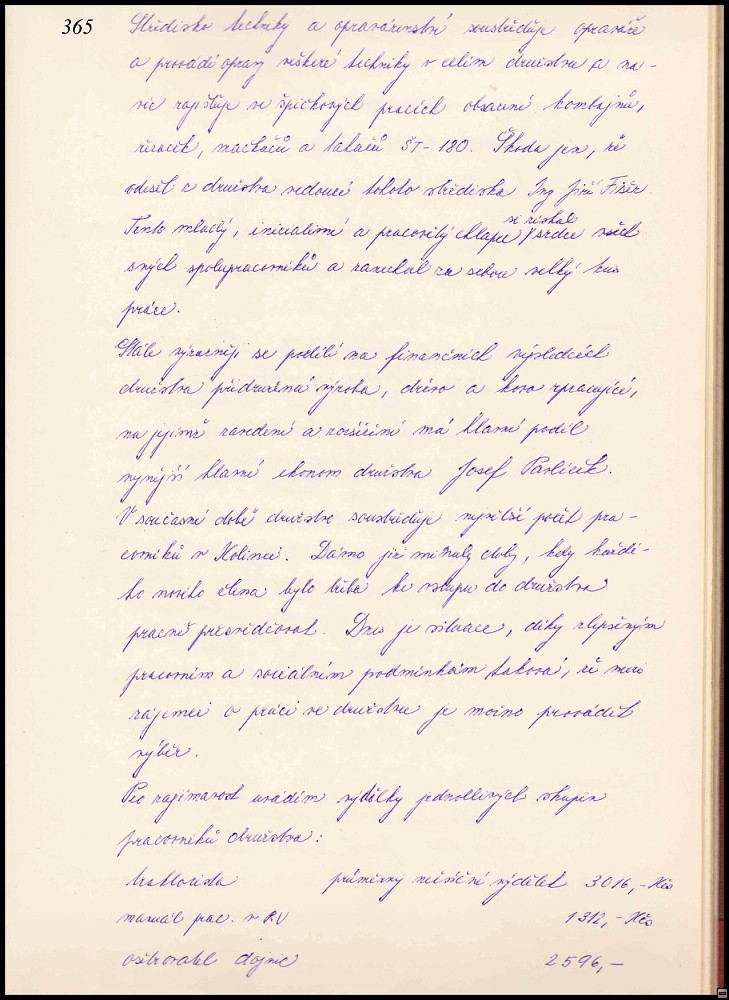 365
Středisko techniky a opravárenství soustřeďuje opraváře
a provádí opravy veškeré techniky v celém družstvu a na-
víc zajišťuje ve špičkových pracích obsazení kombajnů,
řezaček, mačkačů a tahačů ŠT-180. Škoda jen, že
odešel z družstva vedoucí tohoto střediska Ing Jiří Fišer.
Tento mladý, iniciativní a pracovitý chlapec si získal srdce všech
svých spolupracovníků a zanechal za sebou velký kus
práce.
Stále výrazněji se podílí na finančních výsledcích
družstva přidružená výroba, dřevo a kovo zpracující,
na jejímž zavedení a rozšíření má hlavní podíl
nynější hlavní ekonom družstva Josef Pavlíček.
V současné době družstvo soustřeďuje největší počet pra-
covníků v Kolinci. Dávno již minuly doby, kdy každé-
ho nového člena bylo třeba ke vstupu do družstva
pracně přesvědčovat. Dnes je situace, díky zlepšeným
pracovním a sociálním podmínkám taková, že mezi
zájemci o práci ve družstvu je možno provádět
výběr.
Pro zajímavost uvádím výdělky jednotlivých skupin
pracovníků družstva:
traktorista průměrný měsíční výdělek 3016,- Kčs
manuál prac. v RV 1312,- Kčs
ošetřovatel dojnic 2596,-